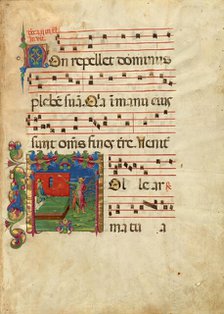 Non repellet dominus
plebē suā. Q̄a ī manu eius
sunt om̄s fines tr̄e. Venit
Tolle ar
ma tua